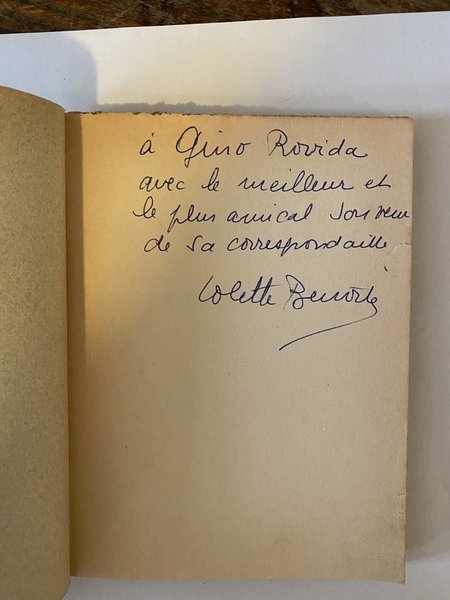 à Gino Rovida
avec le meilleur et
le plus amical souvenir
de sa correspondaille
Colette Benoite